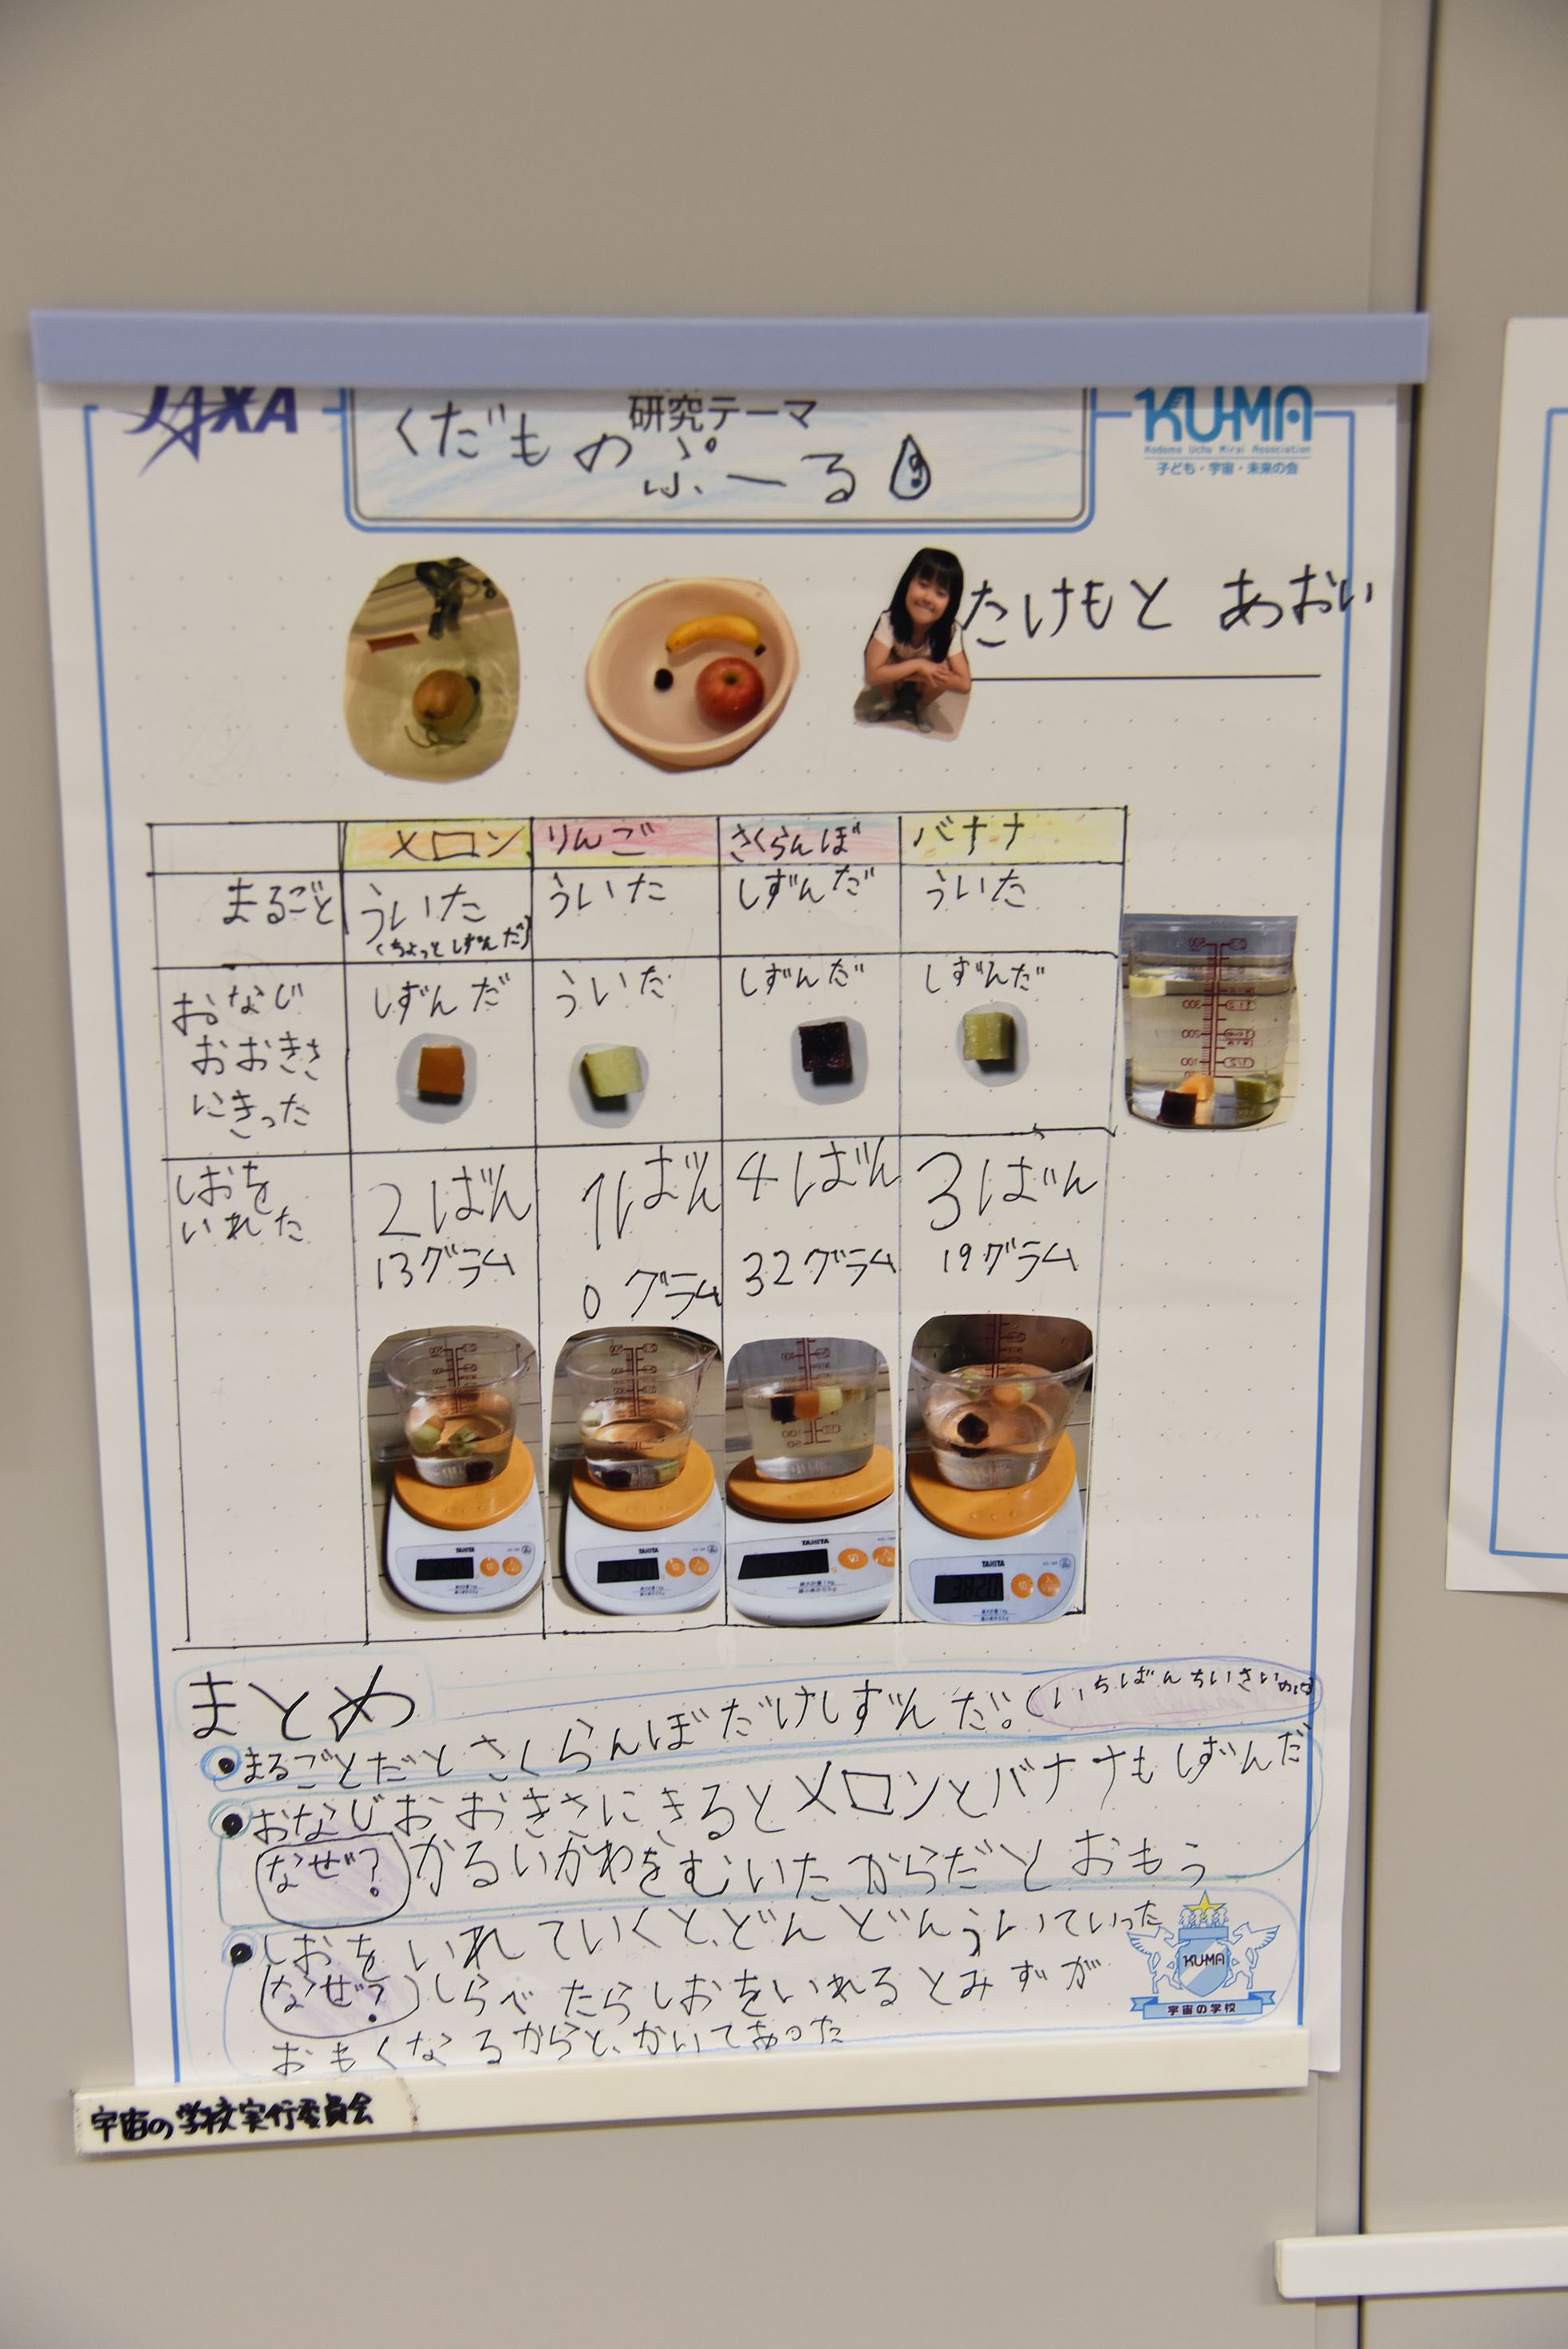 JAXA
研究テーマ
くだものぷーる
KU-MA
Kodomo Uchu Mirai Association
子ども・宇宙・未来の会
たけもと あおい
メロン りんご さくらんぼ バナナ
まるごと ういた ういた しずんだ ういた
(ちょっとしずんだ)
おなじ しずんだ ういた しずんだ しずんだ
おおきさ
にきった
しおを 2ばん 1ばん 4ばん 3ばん
いれた 13グラム 0グラム 32グラム 19グラム
TANITA TANITA TANITA TANITA
まとめ
まるごとだとさくらんぼだけしずんだ。(いちばんちいさいのに
おなじおおきさにきるとメロンとバナナもしずんだ
なぜ? かるいかわをむいたからだとおもう
しおをいれていくと、どんどんういていった
なぜ? しらべたらしおをいれるとみずが
おもくなるからと、かいてあった
KU-MA
宇宙の学校
宇宙の学校実行委員会